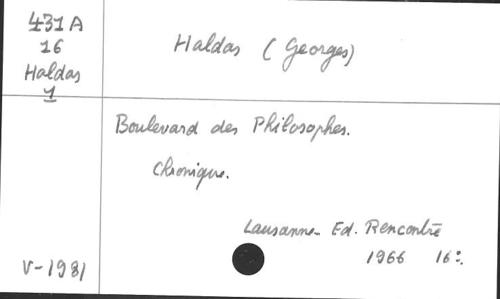 431A
16
Haldas
1
Haldas (Georges)
Boulevard des Philosophes.
Chronique.
Lausanne - Ed. Rencontre
1966 16°.
V-1981